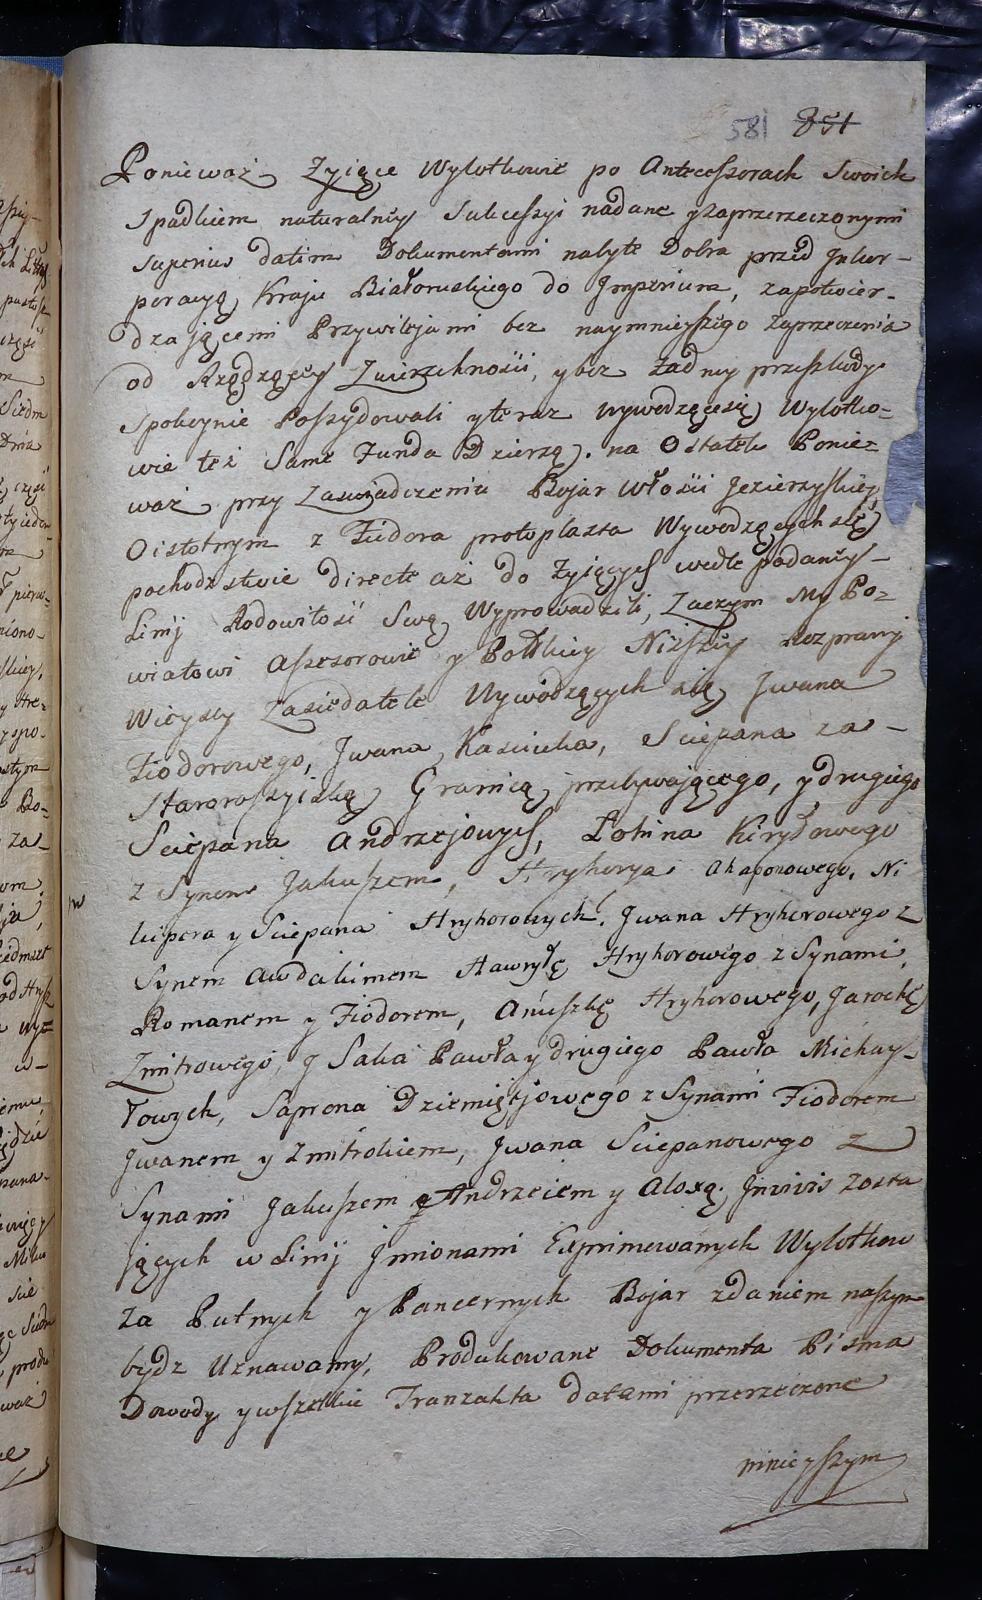 581 851
Ponieważ Zyiące Wylotkowie po Antecessorach Swoich
Spadkiem naturalney Sukcessyi nadane y zaprzerzeczonymi
superius datim Dokumentami nabyte Dobra przed Inkor-
poracyą Kraju Białoruskiego do Imperium, zapotwier-
dzającemi Przywilejami bez naymnieyszego zaprzeczenia
od Rządzącey Zwierzchności, y bez żadney przeszkody
Spokoynie Possydowali y teraz wywodzącesię Wylotko-
wie też Same Funda Dzierżą. na Ostatek Ponie-
waż przy Zaswiadczeniu Bojar Włości Jezierzyskiey
O istotnym z Fiodora protoplasta Wywodzących się
pochodzstwie directe aż do Zyiących wedle podaney
Linij Rodowitości Swą Wyprowadzili, Zaczym My Po-
wiatowi Assesorowie y Połłckiey Niższey Rozprawy
Wieyscy Zasiedatele Wywodzących się Jwana
Fiodorowego, Jwana Kasciuka, Sciepana za-
Staroroszyiską Granicą przebywającego, y drugiego
Sciepana Andrzejowych, Łohina Kiryłowego
z Synem Jakuszem, Hryhorya Ahaponowego, Ni
kipera y Sciepana Hryhorowych, Jwana Hryhorowego z
Synem Awdakimem Hawryłę Hryhorowego z Synami,
Romanem y Fiodorem, Anuszkę Hryhorowego, Jarockę
Zmitrowego, J Saka Pawła y drugiego Pawła Michay-
łowych, Saprona Dziemiejowego z Synami Fiodorem
Jwanem y Zmitrokiem, Jwana Sciepanowego z
Synami Jakuszem Andrzeiem y Aloxą, Jnvivis zosta
jących w Linij Jmionami Exprimowanych Wylotkow
za Putnych y Pancernych Bojar zdaniem naszym
bydz Uznawamy, Produkowane Dokumenta Pisma
Dowody y wszelkie Tranzakta datami przerzeczone
ninieyszym